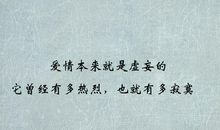 爱情本来就是虚妄的
它曾经有多热烈，也就有多寂寞